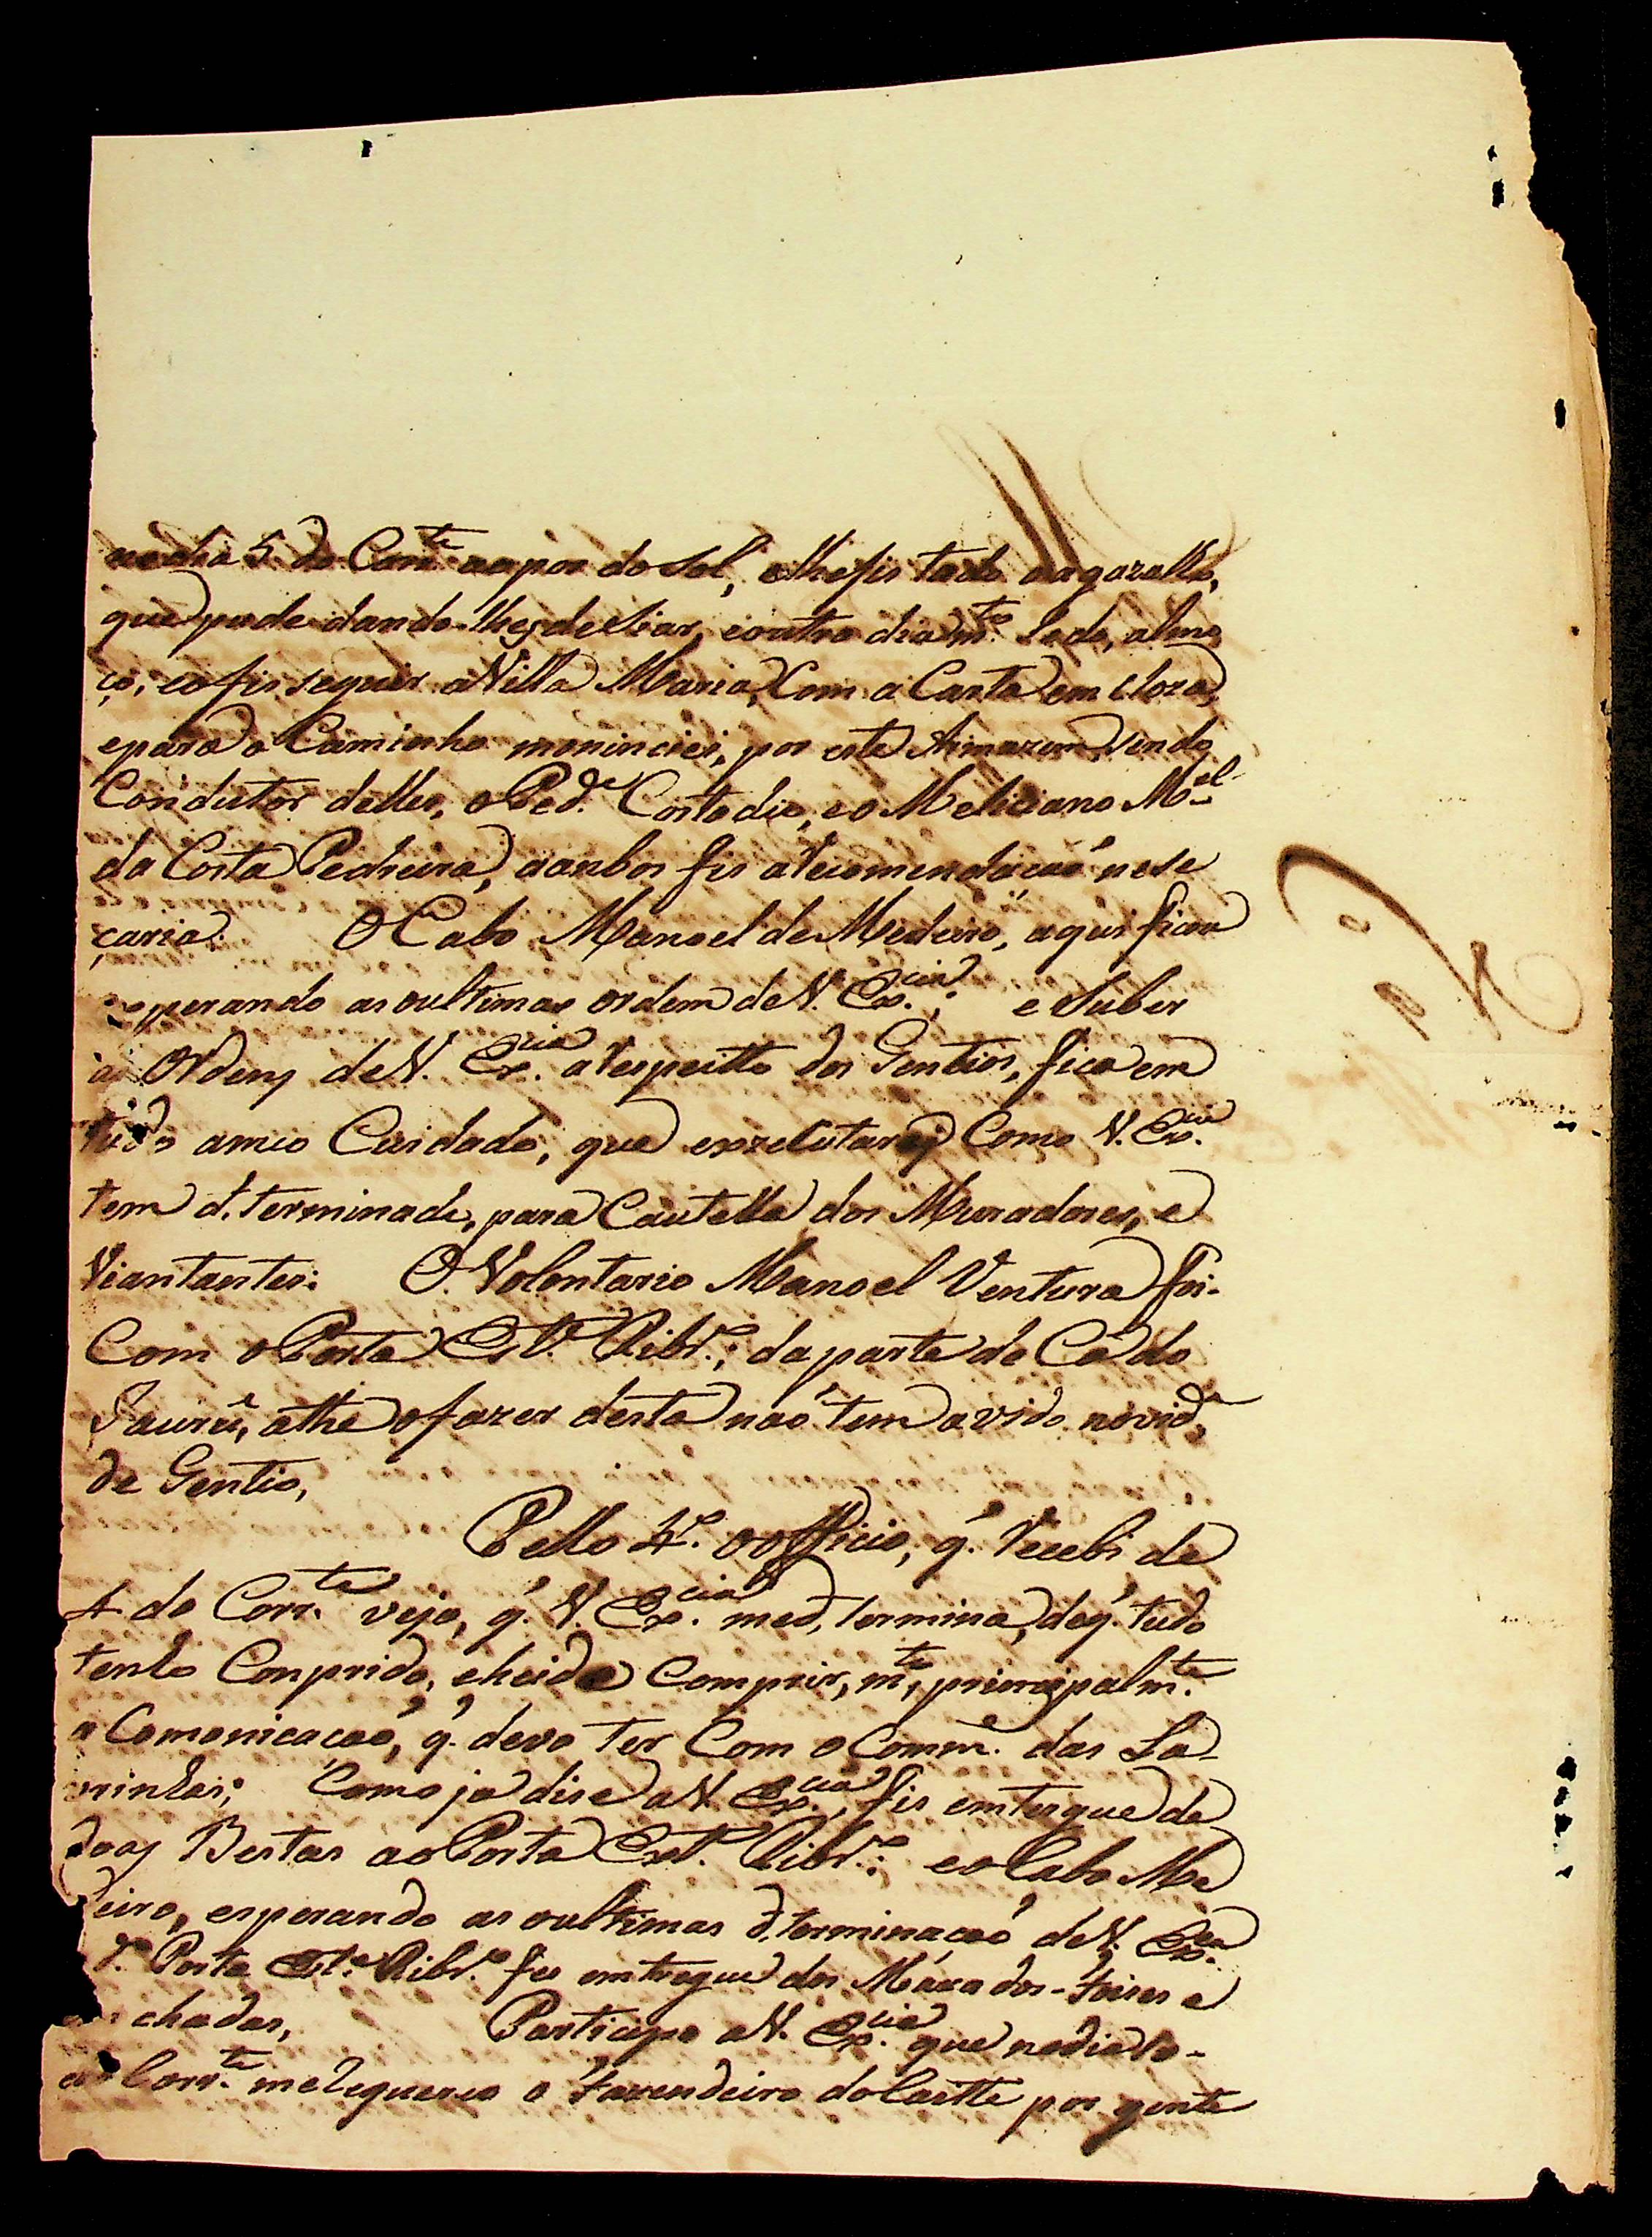 no dia 5 do Corr.te ao por do Sol, e lhe fis todo a agazalho,
que pude dando-lhes de Seiar, e outro dia m.to Sedo, almo
ço; e o fis seguir a Villa Maria, Com a Canta em
e para o Caminho moniniciei, por este Armazem sendo
Condutor delles, o Ped.e Costodio, e o Meliciano M.el
da Costa Pedreira, a anbos fis a recomendacaõ nese
çaria. O Cabo Manoel de Medeiro, aqui ficou
esperando as oultimas ordem de V. Ex.cia; e Suber
as Ordens de V. Ex.cia a respeitto dos Gentios, fica em
tudo a meo Cuidado, que exzecutarej Como V. Ex.cia
tem d.terminado, para Cautella dos Muradores, e
Viantantes: O Volontario Manoel Ventura foi.
Com o Porta Est.e Ribr.o; da parte de Cá do
Jaurú, athe o fazer desta naõ tem avido novid.e
de Gentio,
Pello 4.o o officio, q.' Recebi de
4 do Corr.te vejo, q.' V. Ex.cia me d,termina, de q.' tudo
tenho Conprido, e heide Comprir, m.te, principalm.te
a Comonicacaõ, q.' devo ter Com o Comm.e das Sa-
linhas; Como ja dise a V. Ex.cia, fis emtergue de
doas Bestas ao Porta Est.e Ribr.o; e o Cabo Me
deiro, esperando as oultimas d,terminacaõ de V. Ex.cia
d.o Porta Est.e Ribr.o fis emtregue dos Maxados-foises e
enchadas, Participo a V. Ex.cia que no dia 10-
do Corr.te me Requereo o Fazendeiro do Caitte por gente